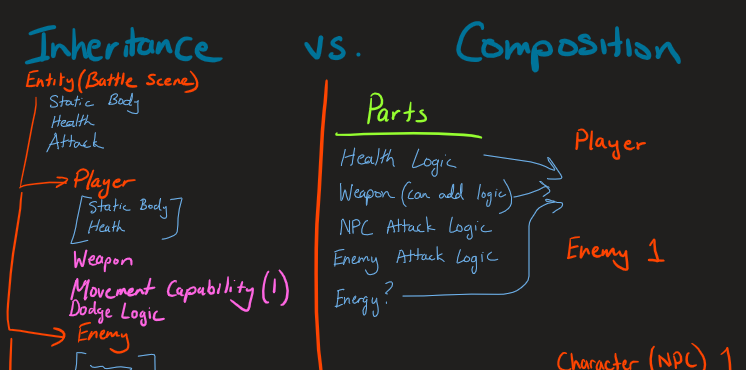 Inheritance vs. Composition
Entity (Battle Scene)
Static Body
Health
Attack
Player
Static Body
Heath
Weapon
Movement Capability (1)
Dodge Logic
Enemy
Parts
Health Logic
Weapon (can add logic)
NPC Attack Logic
Enemy Attack Logic
Energy?
Player
Enemy 1
Character (NPC) 1